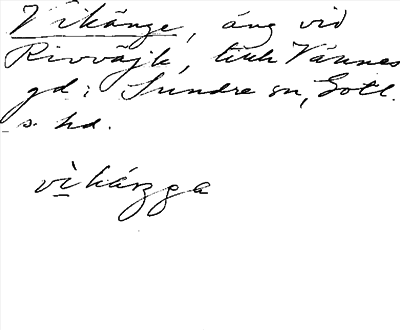 Vikänge, äng vid
Rivvājk, tillh Vännes
gd; Sundre sn, Gotl.
s. hd.
vìkánga